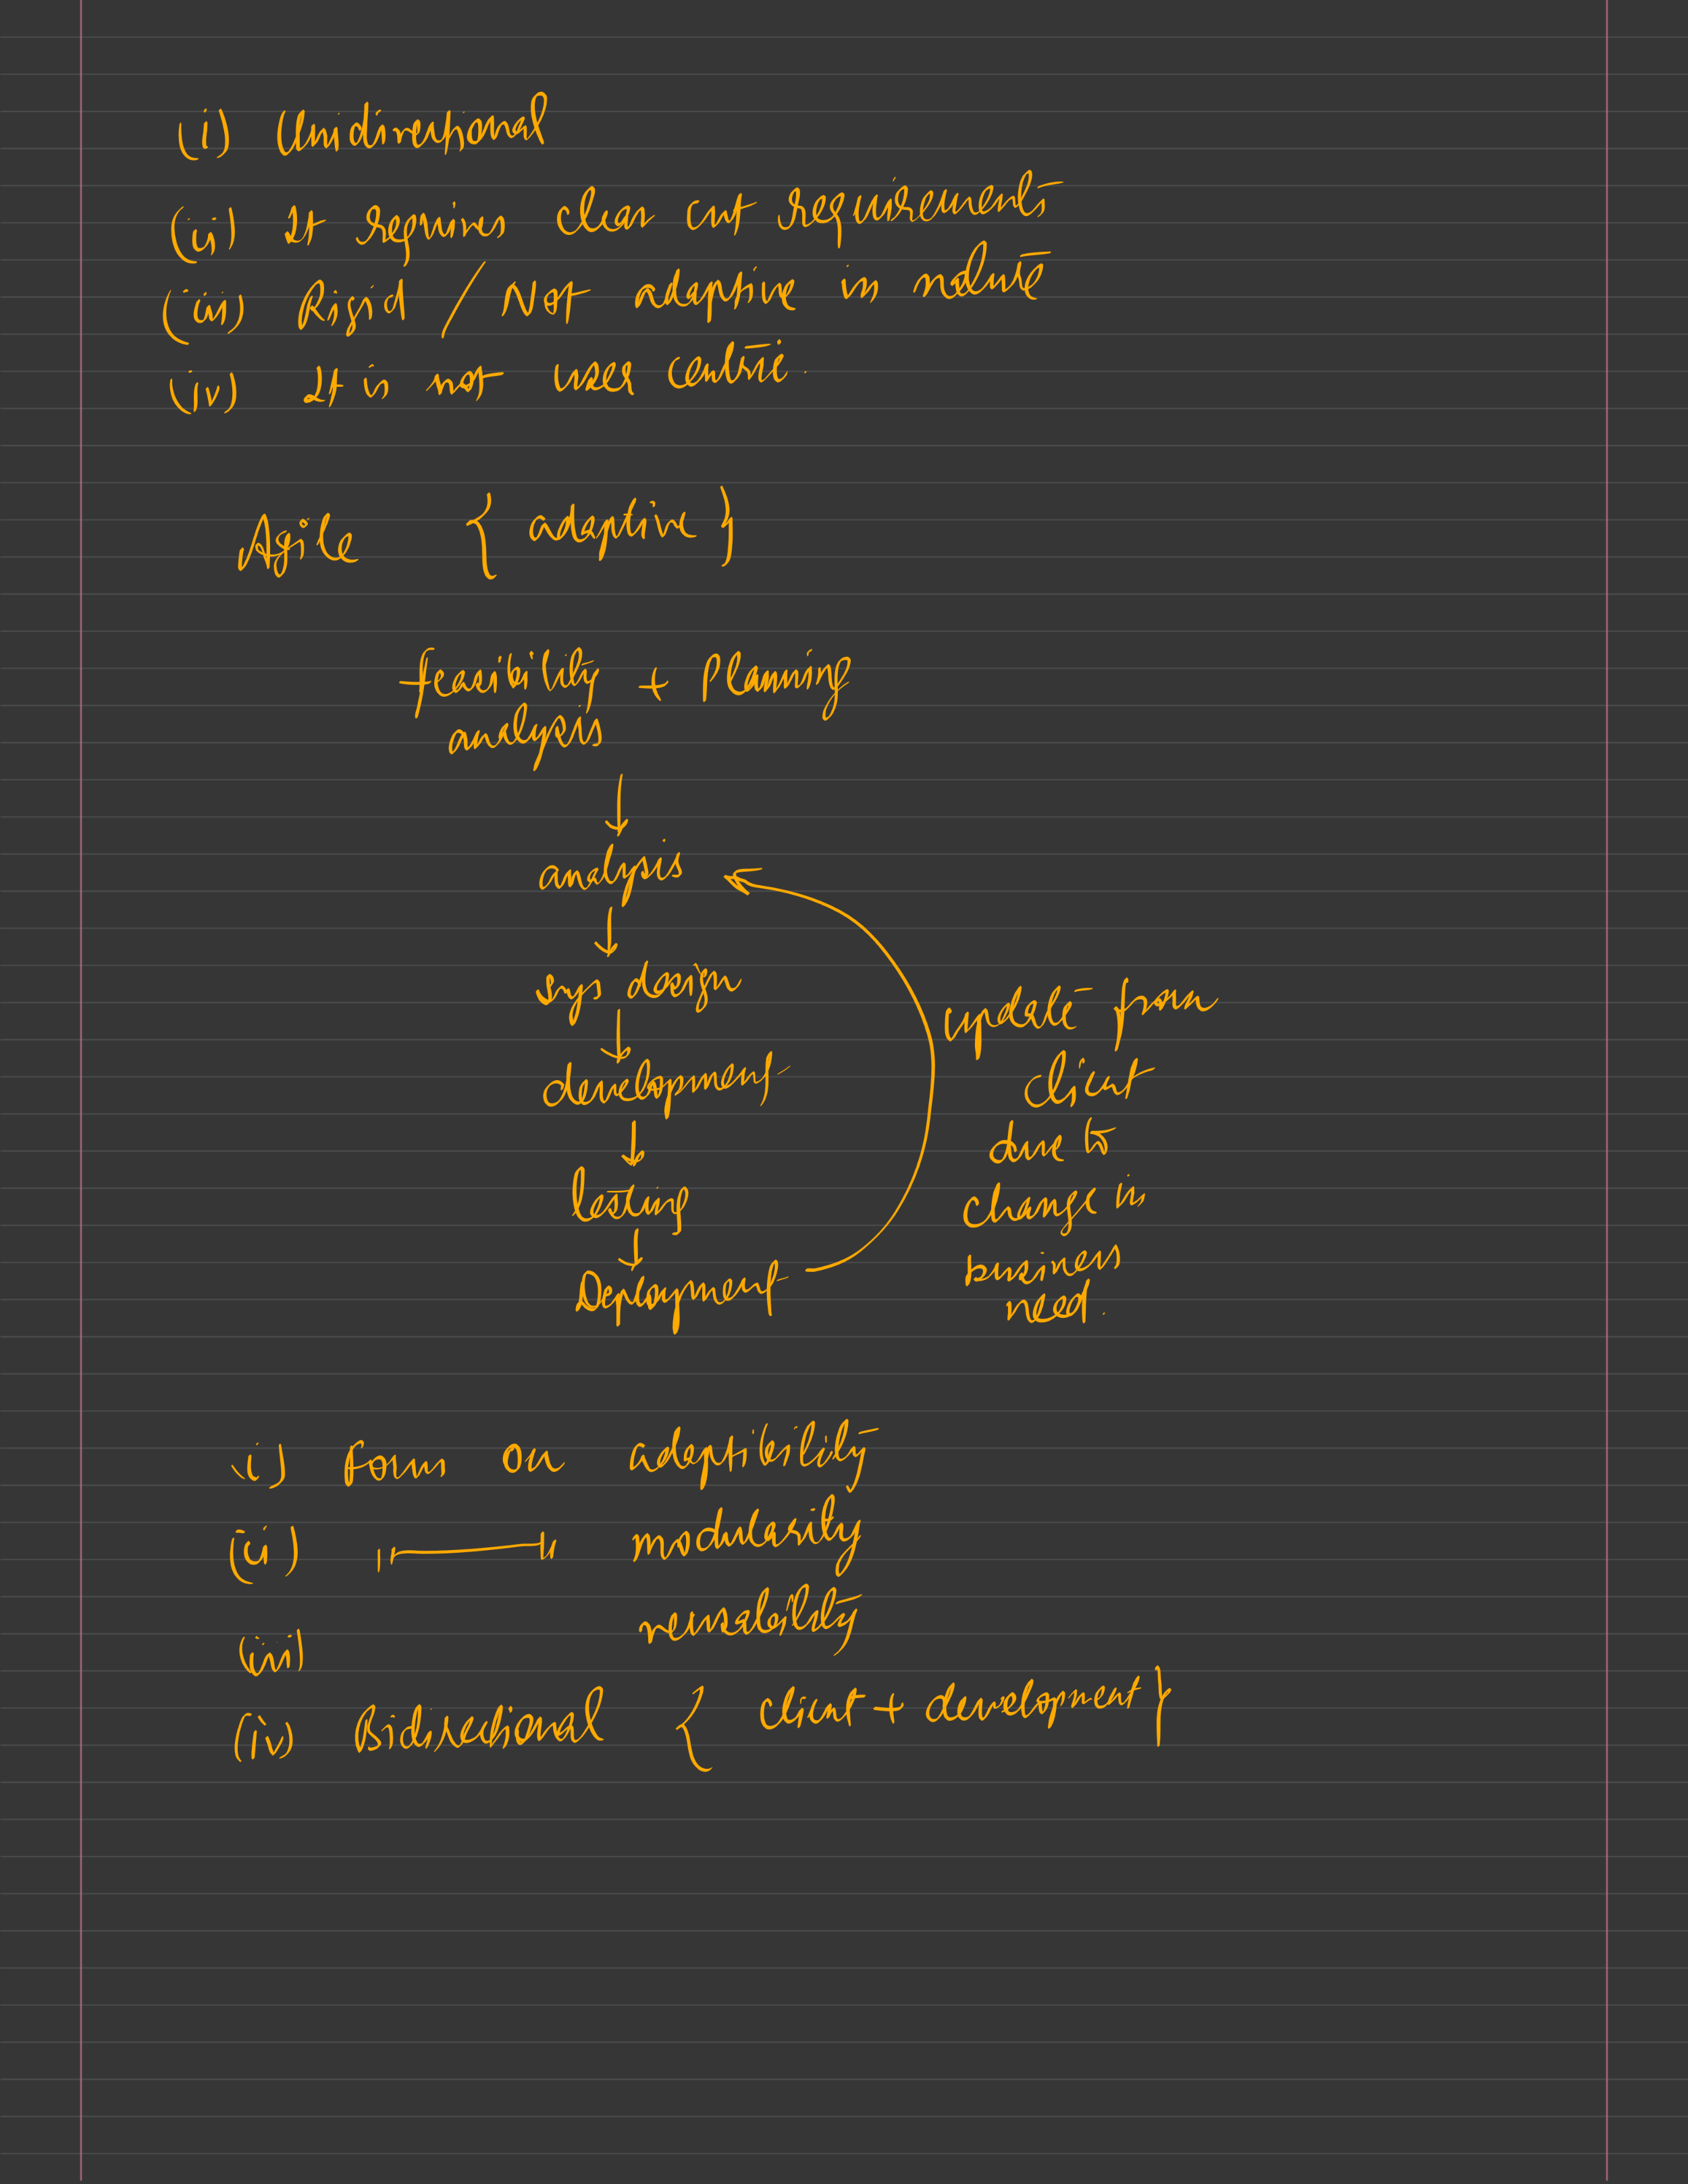 (i) Unidirectional
(ii) It requires clear cut requirements
(iii) Rigid / Not adaptive in nature
(iv) It is not user centric.
Agile { adaptive }
feasibility + Planning
analysis
analysis
sys design
update from
client
development
due to
testing
change in
Deployment
business
need.
i) focus on adaptibility
(ii) modularity
(iii) reusability
(iv) Bidirectional { client + development }